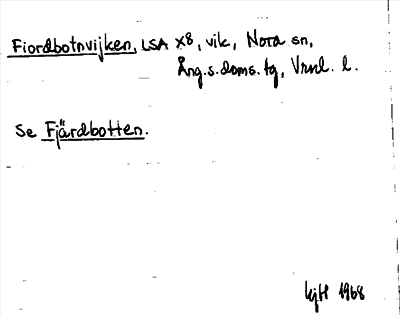 Fiordbotnvijken, LSA X8, vik, Nora sn,
Ång.s.doms.tg, Vrnl. l.
Se Fjärdbotten.
kjH 1968